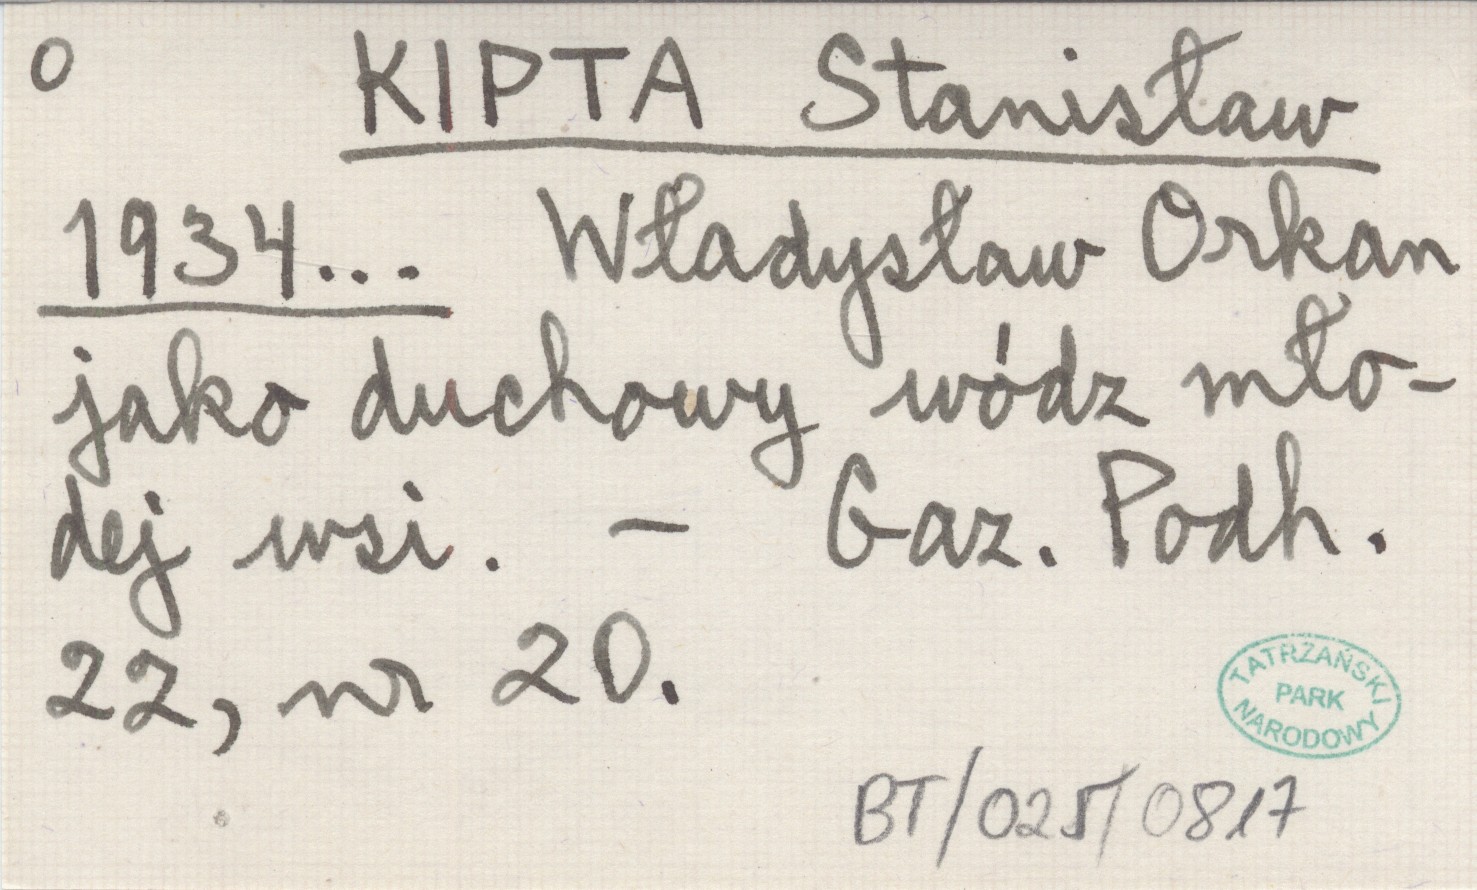 O KIPTA Stanisław
1934... Władysław Orkan
jako duchowy wódz mło-
dej wsi. – Gaz. Podh.
22, nr 20.
TATRZAŃSKI
PARK
NARODOWY
BT/025/0817